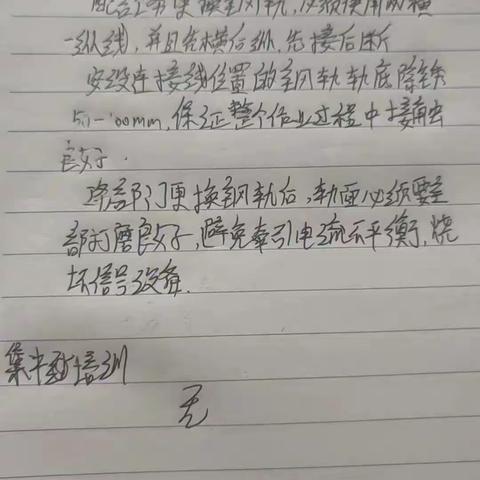 配合工务更换钢轨,必须使用两横
一纵线,并且先横后纵,先接后断
安设连接线位置的钢轨轨底除锈
50-100mm,保证整个作业过程中接触
良好.
路部门更换钢轨后,轨面必须要全
部打磨良好,避免牵引电流不平衡,烧
坏信号设备.
集中 培训
无